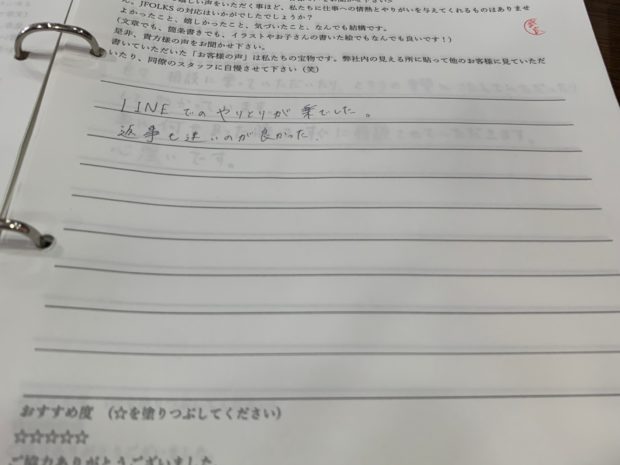 嬉しい声をいただく事ほど、私たちに仕事への情熱とやりがいを与えてくれるものはありませ
ん。JFOLKSの対応はいかがでしたでしょうか？
よかったこと、嬉しかったこと、気づいたこと、なんでも結構です。
（文章でも、箇条書きでも、イラストやお子さんの書いた絵でもなんでも良いです！）
是非、貴方様の声をお聞かせ下さい。
書いていただいた「お客様の声」は私たちの宝物です。弊社内の見える所に貼って他のお客様に見ていただ
いたり、同僚のスタッフに自慢させて下さい（笑）
LINEでのやりとりが楽でした。
返事も速いのが良かった.
おすすめ度 （☆を塗りつぶしてください）
☆☆☆☆☆
ご協力ありがとうございました